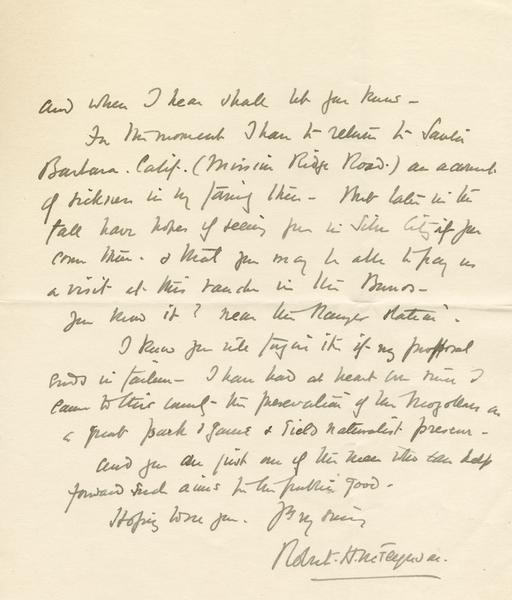 and when I hear shall let you know –
For the moment I have to return to Santa
Barbara. Calif. (Mission Ridge Road.) on account
of sickness in my family there – But later in the
fall have hopes of seeing you in Silver City if you
come there. & that you may be able to pay us
a visit at this rancho in the Burros –
You know it? near the Ranger Station.
I know you will forgive it if my proposal
ends in failure – I have had at heart ever since I
came to this county – the preservation of the Mogollons as
a great park & game & field naturalist preserve –
and you are just one of the men who can help
forward such aims for the public good.
Hoping to see you.
Robert. H.